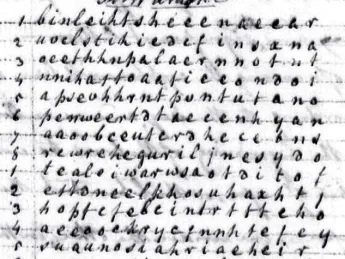 1 binleihtshecenaeear
2 uoelstihiedef insana
3 oeethhnpalaernnotnt
4 nnihattoaaticeondoi
5 apsevhhrntpontutano
6 pemweertdtaecenhyan
7 aaoobeeuterdhecetns
8 rewreheguriljnesydo
1 tealoiwarwsaotditof
2 ethoneelkhosuhaxhtj
3 hoptefebeintrtttcho
4 aeeooekrycgnnhtefey
5 suaunosiahriaeheir